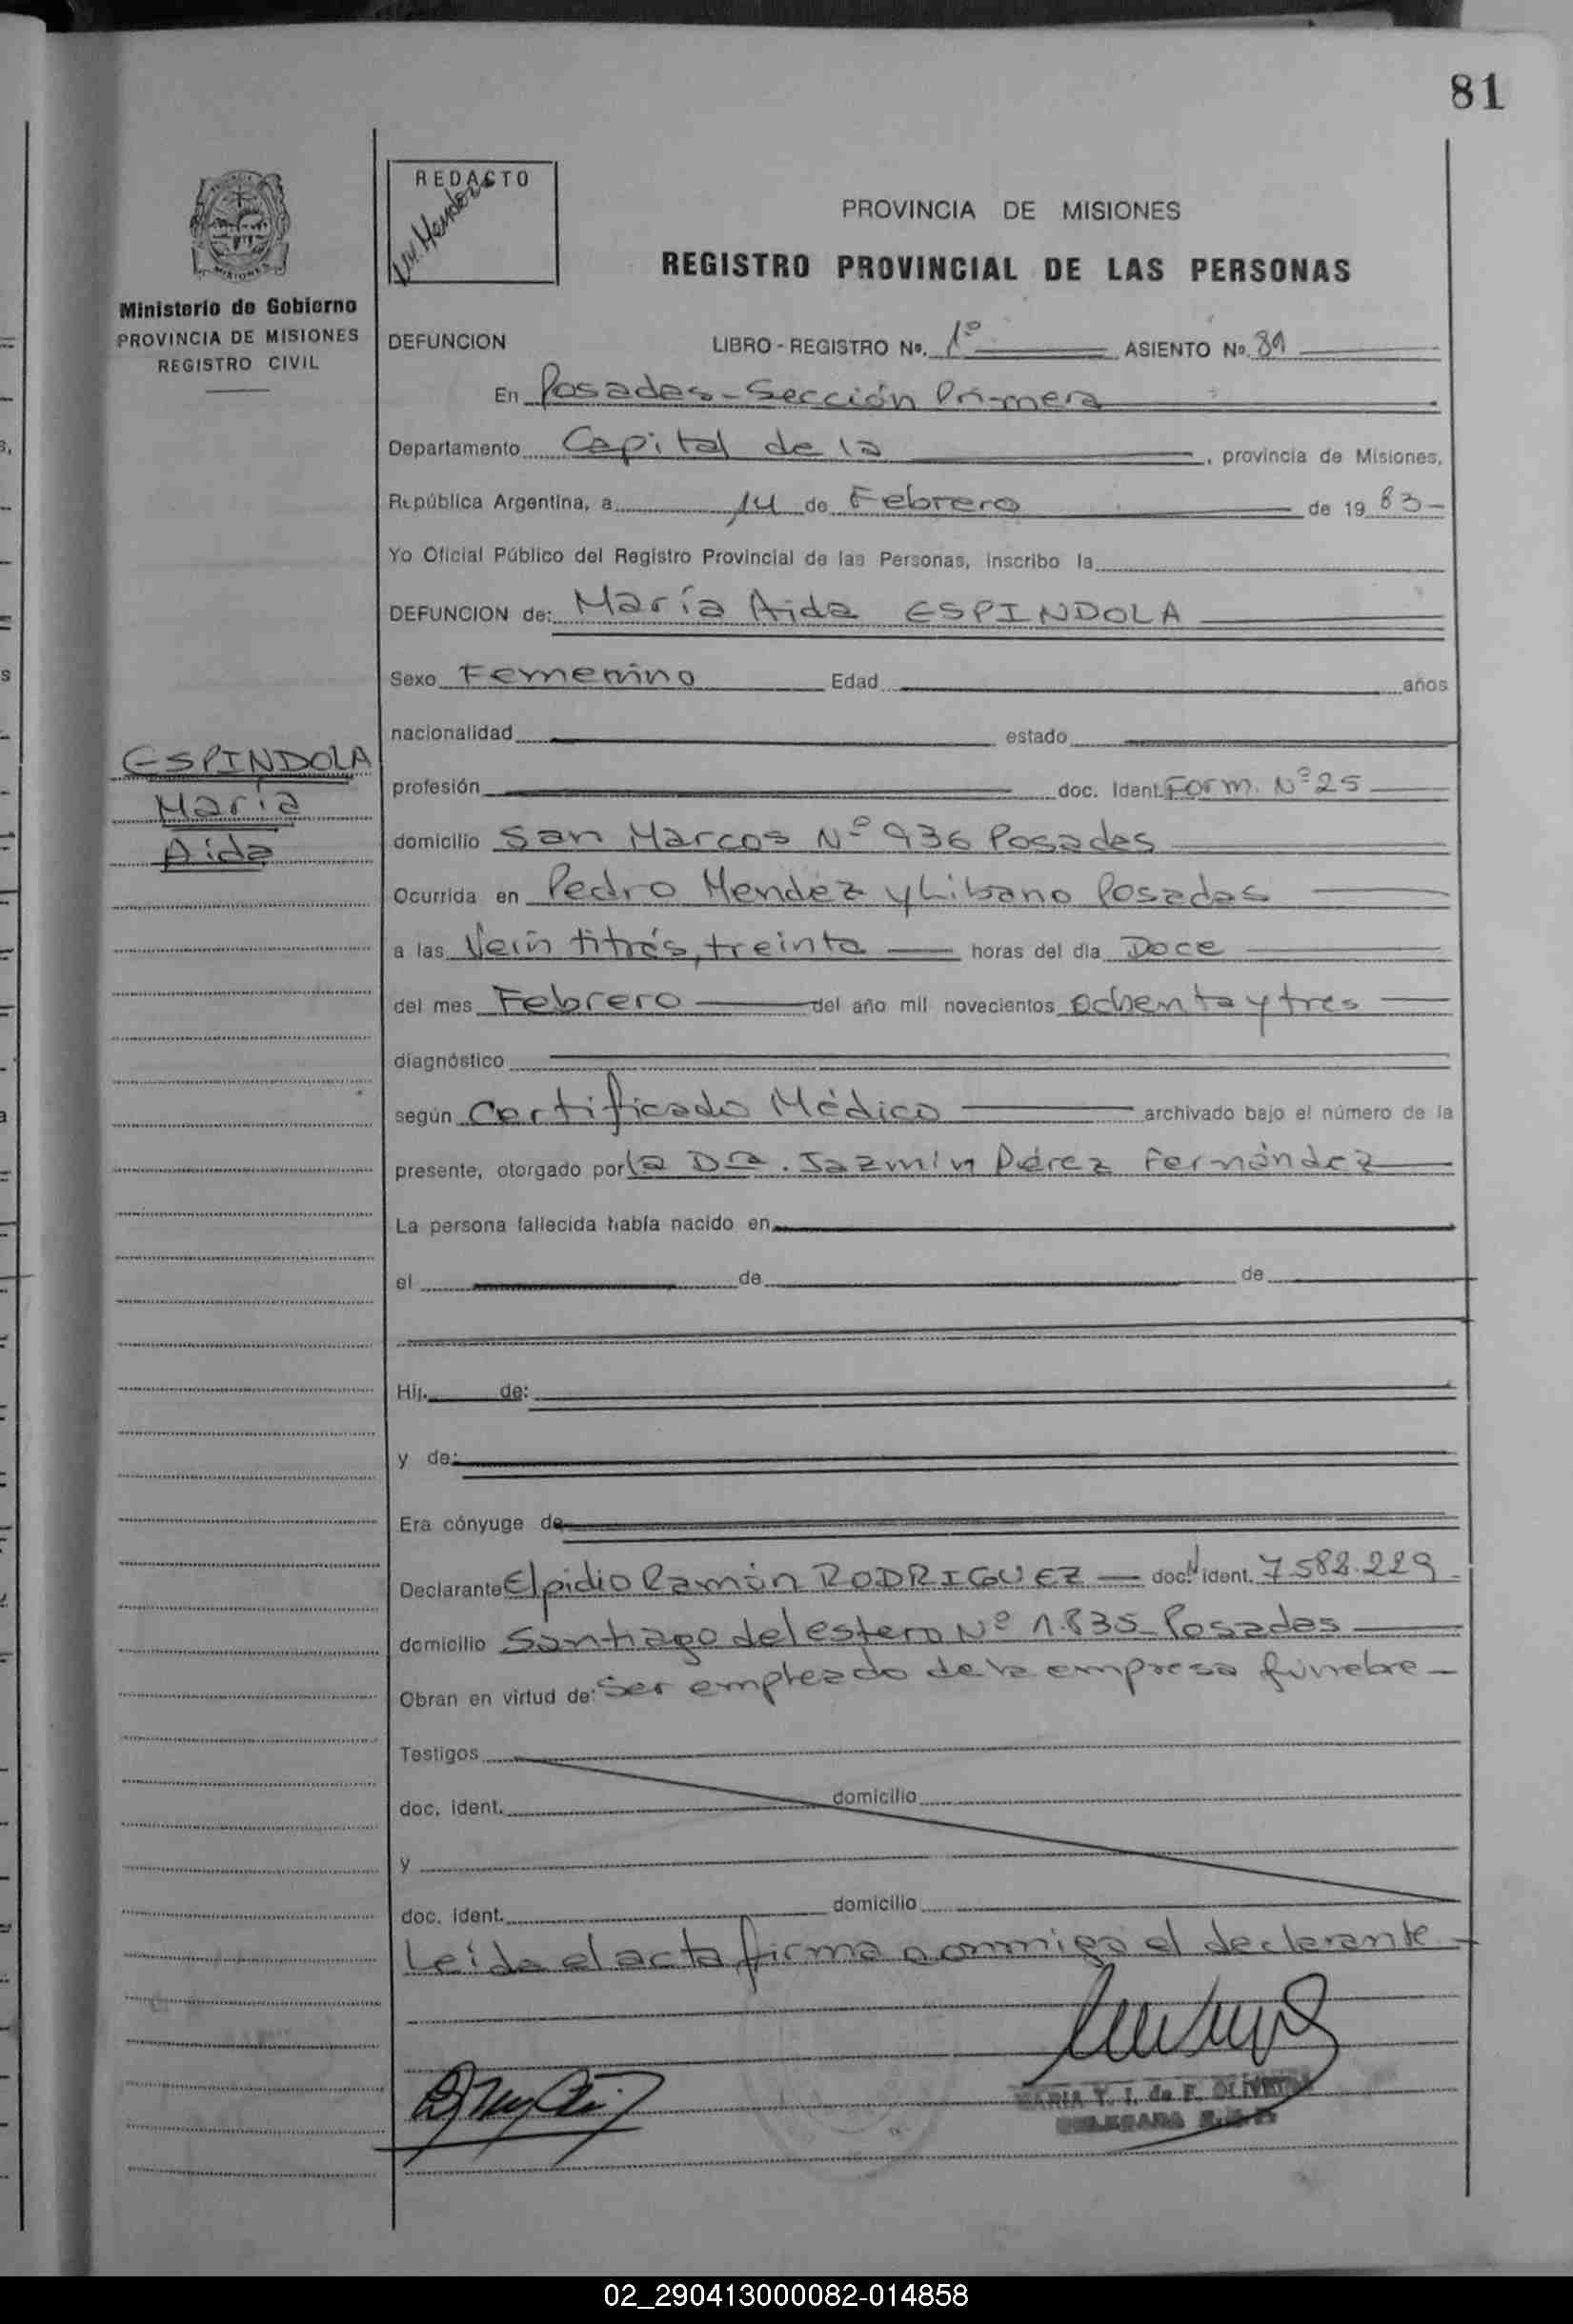 81
REDACTO
PROVINCIA DE MISIONES
REGISTRO PROVINCIAL DE LAS PERSONAS
MISIONES
Ministerio de Gobierno
PROVINCIA DE MISIONES
REGISTRO CIVIL
DEFUNCION LIBRO - REGISTRO Nº. 1º ASIENTO Nº 81
En Posadas - Sección Primera
Departamento Capital de la , provincia de Misiones,
República Argentina, a 14 de Febrero de 19 83 -
Yo Oficial Público del Registro Provincial de las Personas, inscribo la
DEFUNCION de: María Aida ESPINDOLA
Sexo Femenino Edad años
nacionalidad estado
ESPINDOLA
María
Aida
profesión doc. Ident. Form. Nº 25
domicilio San Marcos Nº 936 Posadas
Ocurrida en Pedro Mendez y Libano Posadas
a las Vein titrés, treinta horas del dia Doce
del mes Febrero del año mil novecientos ochenta y tres
diagnóstico
según Certificado Médico archivado bajo el número de la
presente, otorgado por la Dra. Jazmín Pérez Fernández
La persona fallecida había nacido en
el de de
Hij. de:
y de:
Era cónyuge de
Declarante Elpidio Ramón RODRIGUEZ — doc. ident. 7.582.229 -
domicilio Santiago del estero Nº 1.835 - Posadas
Obran en virtud de: Ser empleado de la empresa fúnebre -
Testigos
doc. ident. domicilio
y
doc. ident. domicilio
Leída el acta firma conmigo el declarante -
MARIA T. I. de F. OLIVERA
02_290413000082-014858